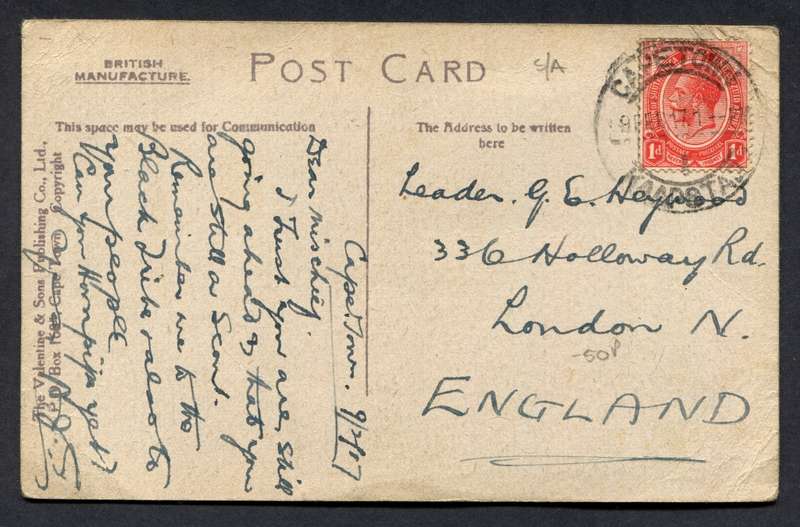 BRITISH
MANUFACTURE.
POST CARD
C/A
This space may be used for Communication
The Address to be written
here
CAPE TO
KAAPSTA
1d 1d
Cape Town. 9/2/17
Dear Mischief,
I Trust you are still
going ahead & that you
are still a Scout.
Remember me to the
Black Tribe & also to
your people
Can you Hornpipe yet?
The Valentine & Sons Publishing Co., Ltd.,
P.O. Box 1685, Cape Town Copyright
Leader. G. E. Heywood
336 Holloway Rd.
London N.
-50P
ENGLAND